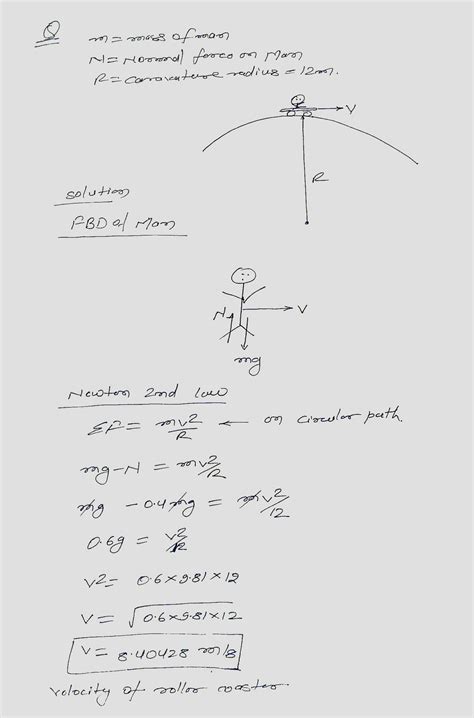 Q m = mass of man
N = Normal force on Man
R = Curvature radius = 12m.
V
R
solution
FBD of Man
N
V
mg
Newton 2nd law
ΣF = mv²/R ← on circular path.
mg-N = mv²/R
mg - 0.4mg = mv²/12
0.6g = v²/R
v² = 0.6×9.81×12
v = √0.6×9.81×12
V = 8.40428 m/s
velocity of roller coaster.